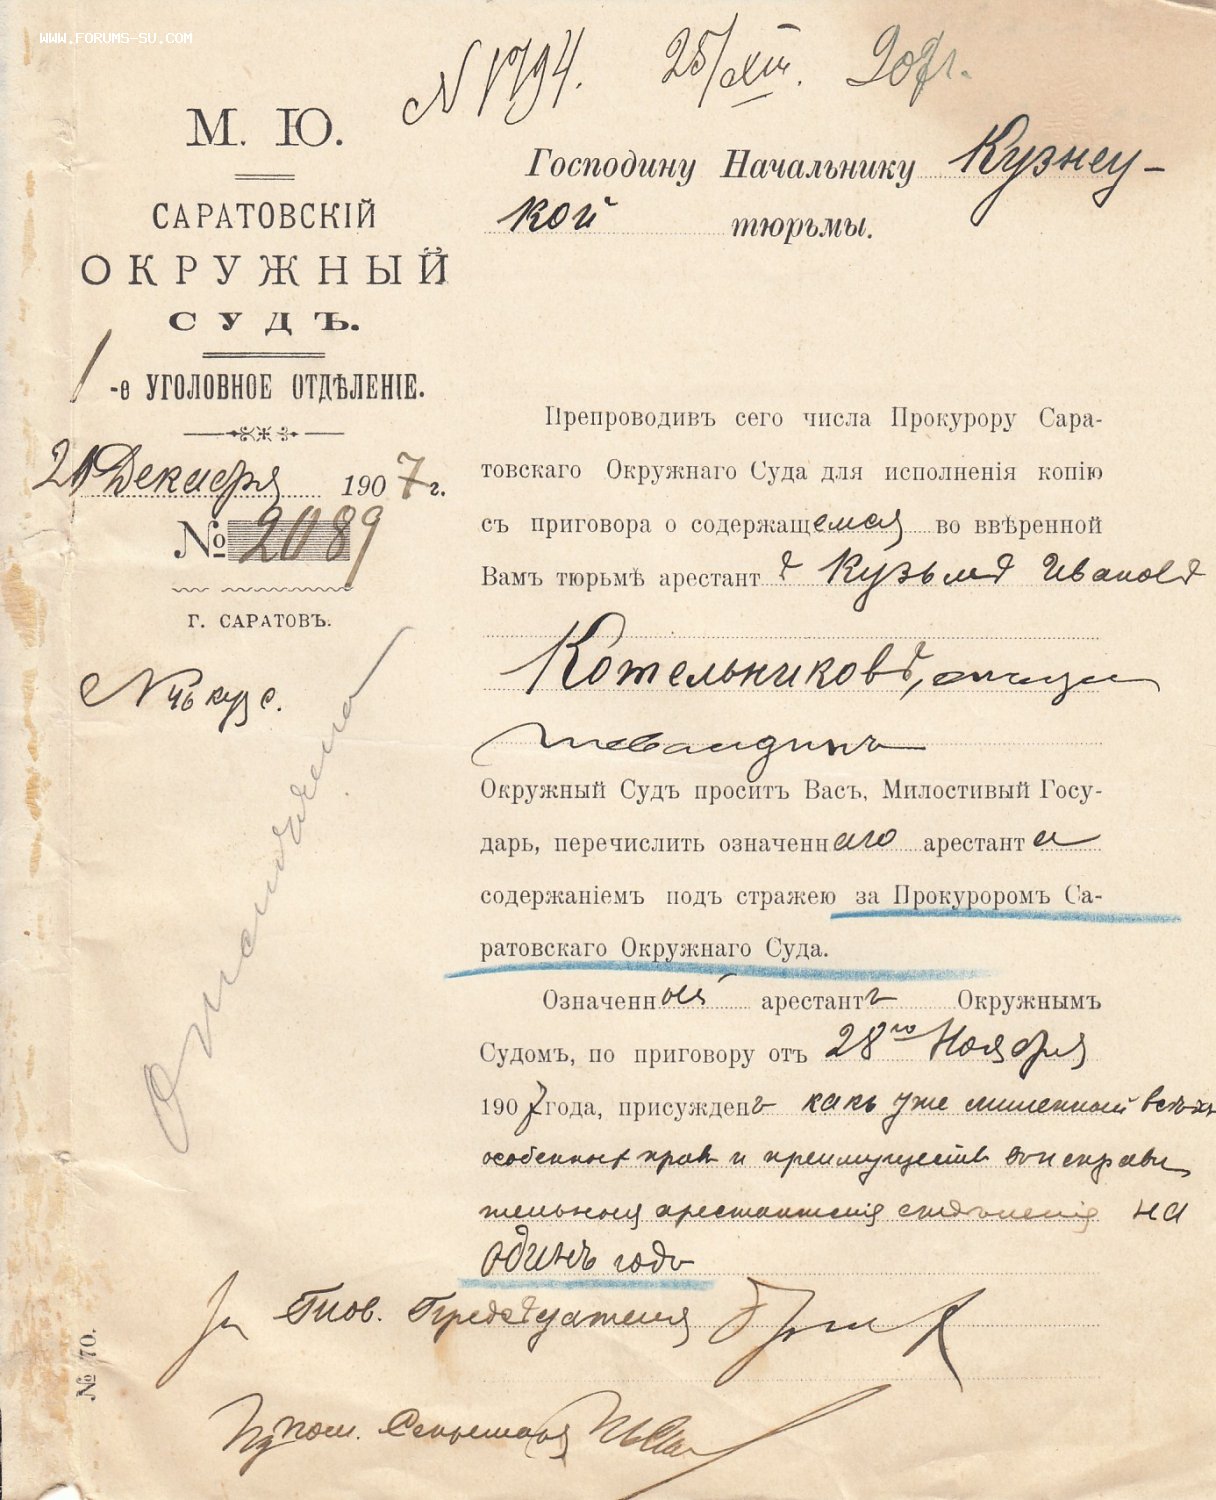 WWW.FORUMS-SU.COM
N 1794. 25/XII. 907 г.
М. Ю.
САРАТОВСКІЙ
ОКРУЖНЫЙ
СУДЪ.
1-е УГОЛОВНОЕ ОТДѢЛЕНІЕ.
21 Декабря 1907 г.
№ 2089
Г. САРАТОВЪ.
N 46 куз с.
Господину Начальнику Кузнец-
кой тюрьмы.
Препроводивъ сего числа Прокурору Сара-
товскаго Окружнаго Суда для исполненія копію
съ приговора о содержащемся во ввѣренной
Вамъ тюрьмѣ арестантѣ Кузьмѣ Ивановѣ
Котельниковѣ,
Окружный Судъ проситъ Васъ, Милостивый Госу-
дарь, перечислить означеннаго арестанта
содержаніемъ подъ стражею за Прокуроромъ Са-
ратовскаго Окружнаго Суда.
Означенный арестантъ Окружнымъ
Судомъ, по приговору отъ 28го Ноября
1907 года, присужденъ какъ уже лишенный всѣхъ
особенныхъ правъ и преимуществъ въ исправи
тельныя арестантскія отдѣленія на
одинъ годъ
За Тов. Предсѣдателя
Пом. Секретаря
№ 70.